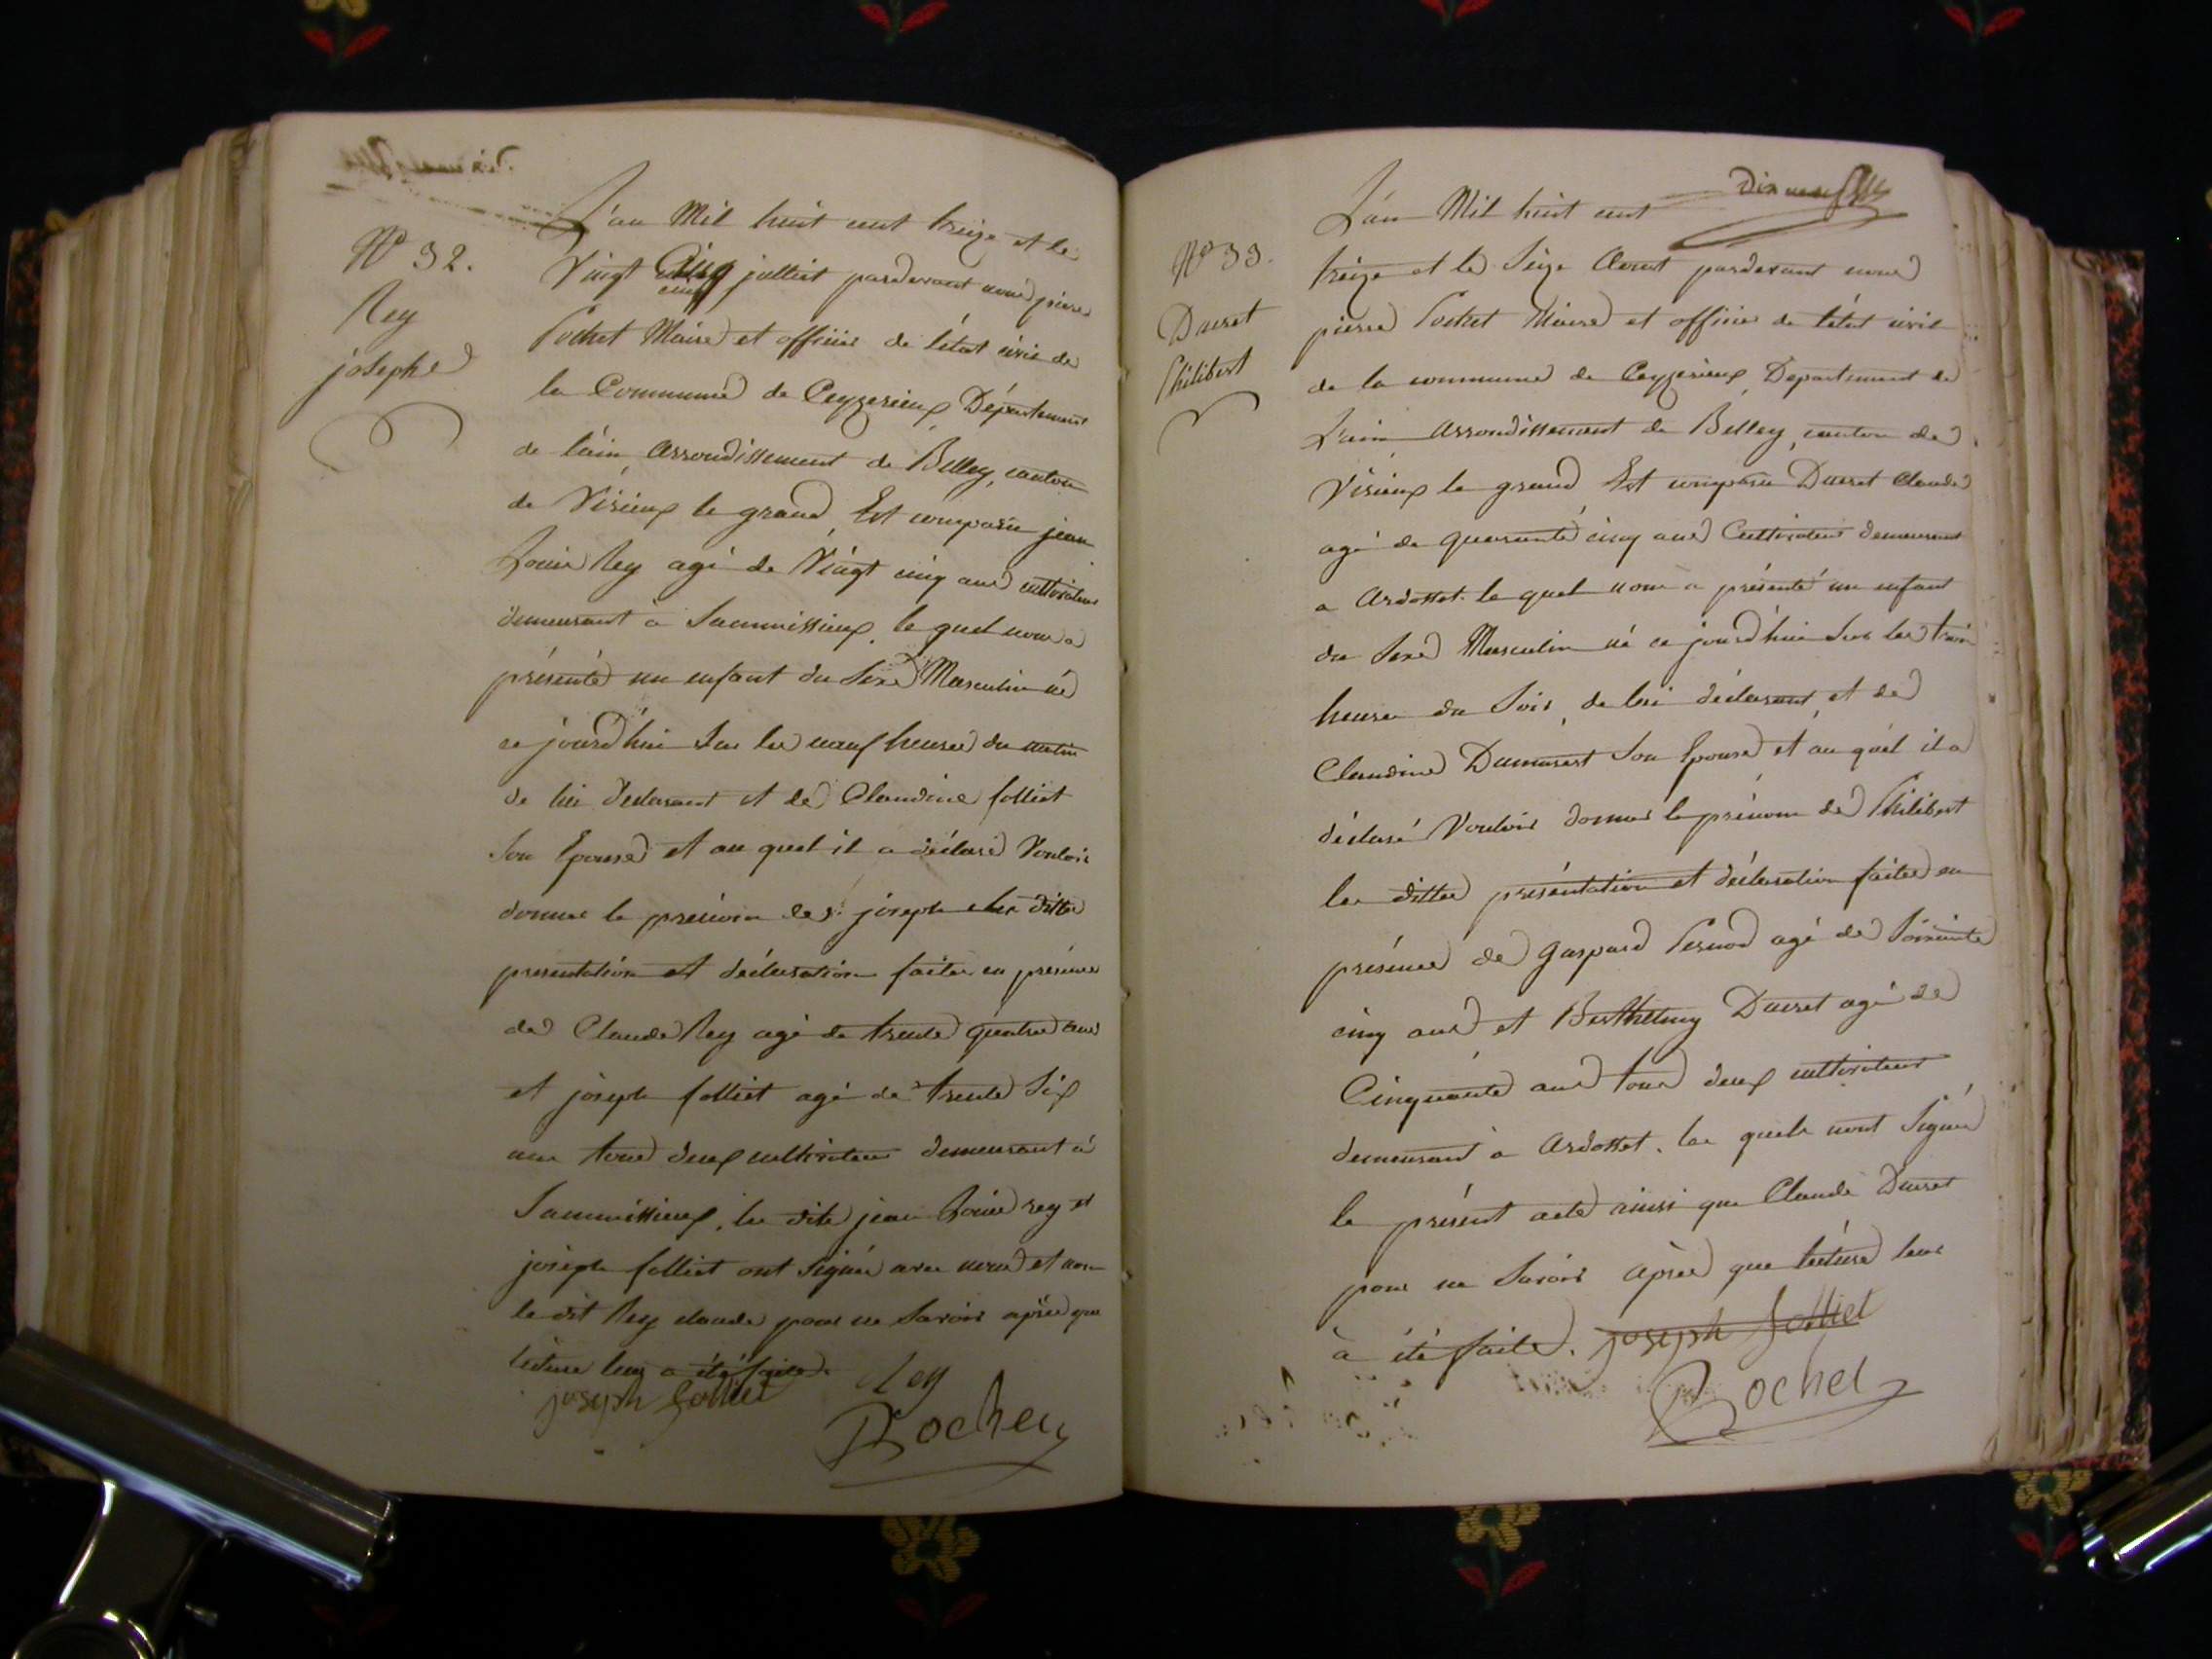 N° 32.
Rey
josephe
L'an Mil huit cent treize et le
Vingt cinq juilliet pardevant nous pierre
cinq
Pochet Maire et officier de l'état civil de
la Commune de Ceyzerieux, Département
de l'ain arrondissement de Belley, canton
de Virieux le grand Est comparu jean
Louis Rey agé de Vingt cinq ans cultivateur
demeurant à Sammissieux, le quel nous a
présenté un enfant du Sexe Masculin né
ce jourd'hui Sur les neuf heures du matin
de lui déclarant et de Claudine folliet
Son Epouse et au quel il a déclaré Vouloir
donner le prenom de joseph les dittes
presentation et déclaration faites en présence
de Claude Rey agé de trente quatre ans
et joseph folliet agé de trente Six
ans tous deux cultivateurs demeurant à
Sammissieux, les dits jean Louis rey et
joseph folliet ont Signés avec nous et non
le dit Rey claude pour ne Savoir après que
lecture leur a été faite.
joseph folliet Rey
Pochet
dix neuf
N° 33.
Ducret
Philibert
L'an Mil huit cent
treize et le Seize Aout pardevant nous
pierre Pochet Maire et officier de l'état civil
de la commune de Ceyzerieux Departement de
L'ain arrondissement de Belley, canton de
Virieux le grand Est comparu Ducret Claude
agé de quarante cinq ans Cultivateur demeurant
a Ardosset. le quel nous a présenté un enfant
du Sexe Masculin né ce jourd'hui Sur les trois
heures du Soir, de lui déclarant, et de
Claudine Dumarest Son Epouse et au quel il a
déclaré Vouloir donner le prénom de Philibert
les dittes présentation et déclaration faites en
présence de gaspard Pernod agé de Soixante
cinq ans et Berthelmy Ducret agé de
Cinquante ans tous deux cultivateurs
demeurant à Ardosset. les quels n'ont Signés
le présent acte ainsi que Claude Ducret
pour ne Savoir après que lecture leur
à été faite. joseph folliet
Pochet